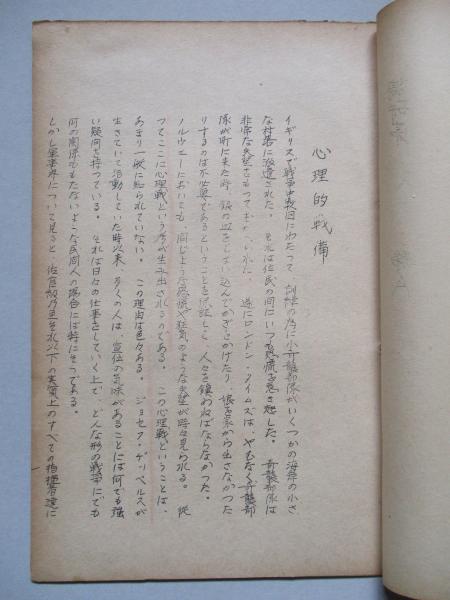 心理的戦備
イギリスで戦争中数回にわたって、訓練の為に小奇襲部隊がいくつかの海岸の小さ
な村落に派遣された。それは住民の間にいつも恐慌を惹き起した。奇襲部隊は
非常な失望をもって 遂にロンドン・タイムズは、やむなく奇襲部
隊が町に来た時、銀の皿をしまい込んでかぎをかけたり、娘を家から出さなかった
りするのは不必要であるということを保証し、人々を鎮わねばならなかった。
ノルウエーにおいても、同じような恐慌や狂気のような失望が時々見られる。従
ってここに心理戦という考が生み出されるのである。この心理戦ということは、
あまり一般に知られていない。この理由は色々ある。ジョセフ・ゲッベルスが
生きていて活動していた時以来、多くの人は、宣伝の気味があることには何でも強
い疑問を持っている。それは日々の仕事をしていく上で、どんな形の戦争にでも
何の関係ももたないような民間人の場合には特にそうである。
しかし軍事界について見ると、佐官級乃至それ以下の実質上のすべての指揮官達に